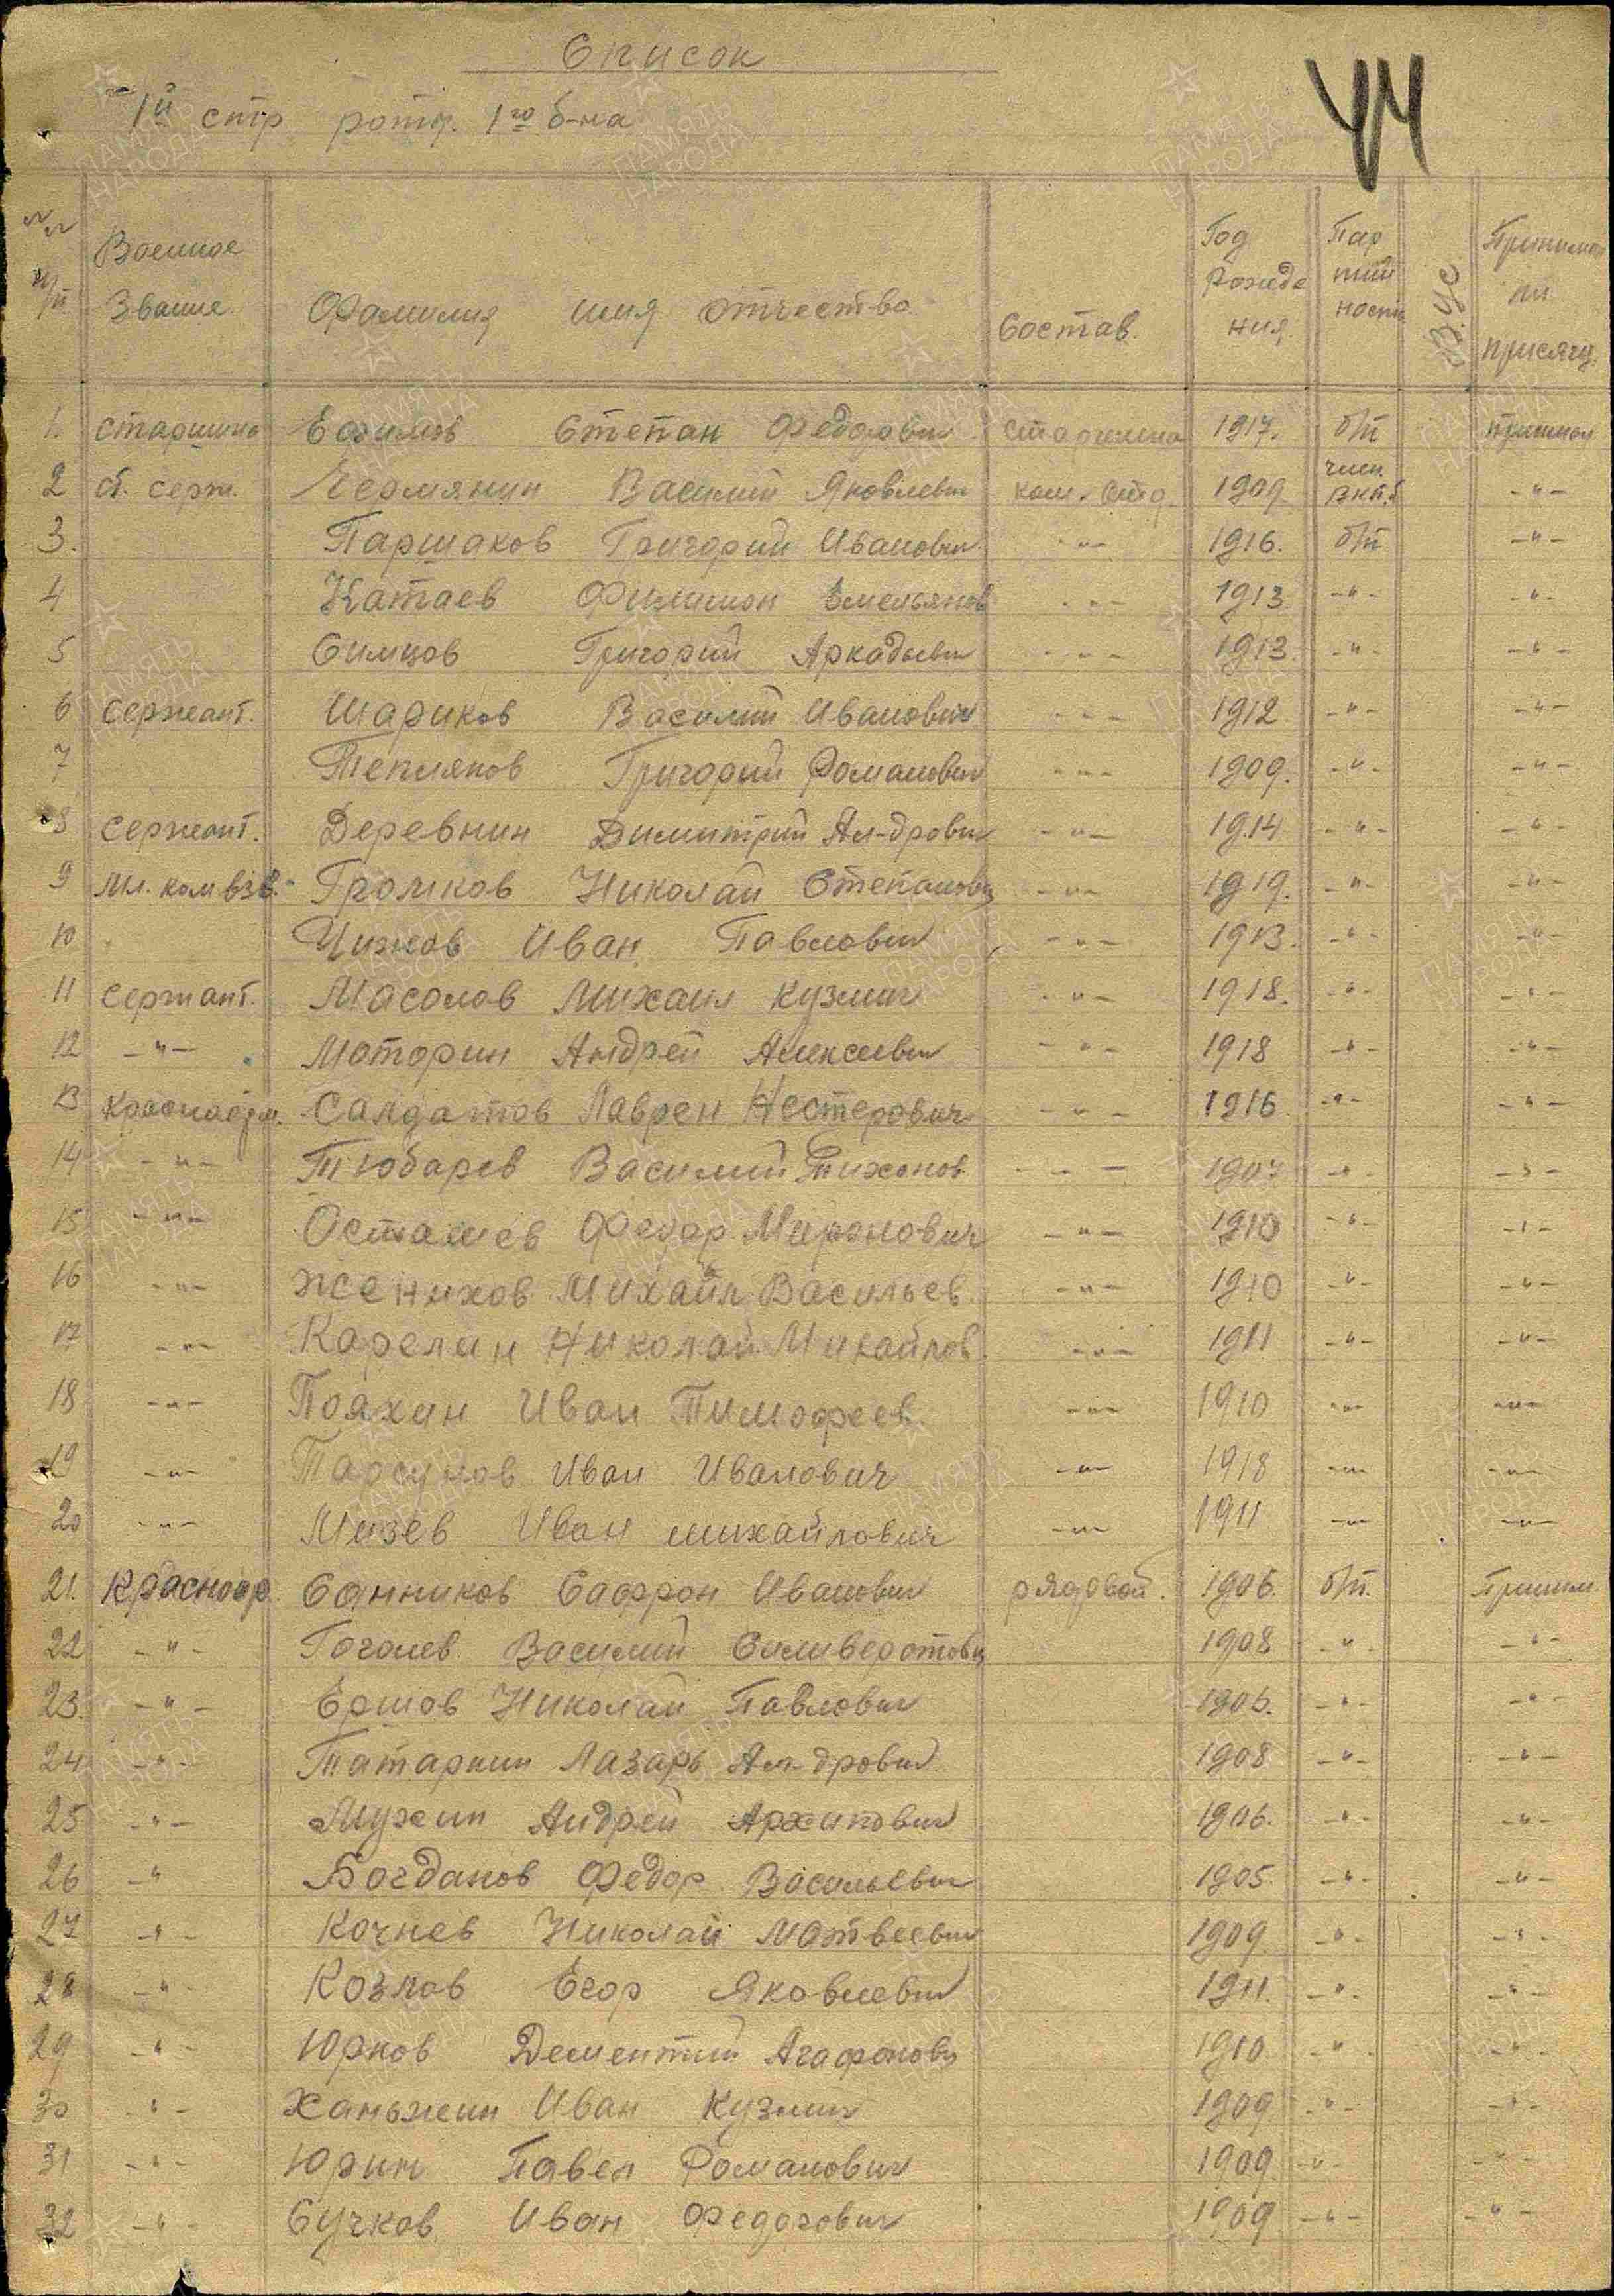 Список
1й стр роты. 1го б-на
44
№№ п/п
Военное Звание
Фамилия имя отчество
Состав.
Год Рожде ния.
Пар тий ность
В.УС
Принимал ли присягу.
1. старшина Ефимов Степан Федорович старшина 1917. б/п принимал
2 ст. серж. Чермянин Василий Яковлевич ком. стр. 1909 член. ВКП.б -"-
3. Паршаков Григорий Иванович. -"- 1916. б/п -"-
4 Катаев Филимон Емельянов -"- 1913 -"- -"-
5 Симцов Григорий Аркадьевич -"- 1913. -"- -"-
6 сержант. Шариков Василий Иванович -"- 1912 -"- -"-
7 Тепляков Григорий Романович -"- 1909. -"- -"-
8 сержант. Деревнин Димитрий Ал-дрович -"- 1914 -"- -"-
9 мл. ком взв. Громков Николай Степанович -"- 1919. -"- -"-
10 Чижов Иван Павлович -"- 1913. -"- -"-
11 сержант. Масолов Михаил Кузмич -"- 1918. -"- -"-
12 -"- Моторин Андрей Алексеевич -"- 1918 -"- -"-
13 Красноарм. Салдатов Лаврен Нестерович -"- 1916 -"- -"-
14 -"- Тюбарев Василий Тихонов -"- 1907 -"- -"-
15 -"- Осташев Федор Миронович -"- 1910 -"- -"-
16 -"- Женихов Михайл Васильев -"- 1910 -"- -"-
17 -"- Карелин Николай Михайлов. -"- 1911 -"- -"-
18 -"- Пояхин Иван Тимофеев. -"- 1910 -"- -"-
19 -"- Тарсунов Иван Иванович -"- 1918 -"- -"-
20 -"- Мизев Иван михайлович -"- 1911 -"- -"-
21. Красноар. Санников Сафрон Иванович рядовой. 1906. б/п. Приним
22 -"- Гоголев Василий Силиверстович 1908 -"- -"-
23. -"- Ершов Николай Павлович 1906. -"- -"-
24 -"- Татаркин Лазарь Ал-дрович 1908 -"- -"-
25 -"- Мухин Андрей Архипович 1906. -"- -"-
26 -" Богданов Федор Васильевич 1905 -"- -"-
27 -"- Кочнев Николай Матвеевич 1909 -"- -"-
28 -"- Козлов Егор Яковлевич 1911. -"- -"-
29 -"- Юрков Дементий Агафонович 1910 -"- -"-
30 -"- Ханьжин Иван Кузмич 1909 -"- -"-
31 -"- Юрин Павел Романович 1909 -"- -"-
32 -"- Сучков Иван Федорович 1909 -"- -"-